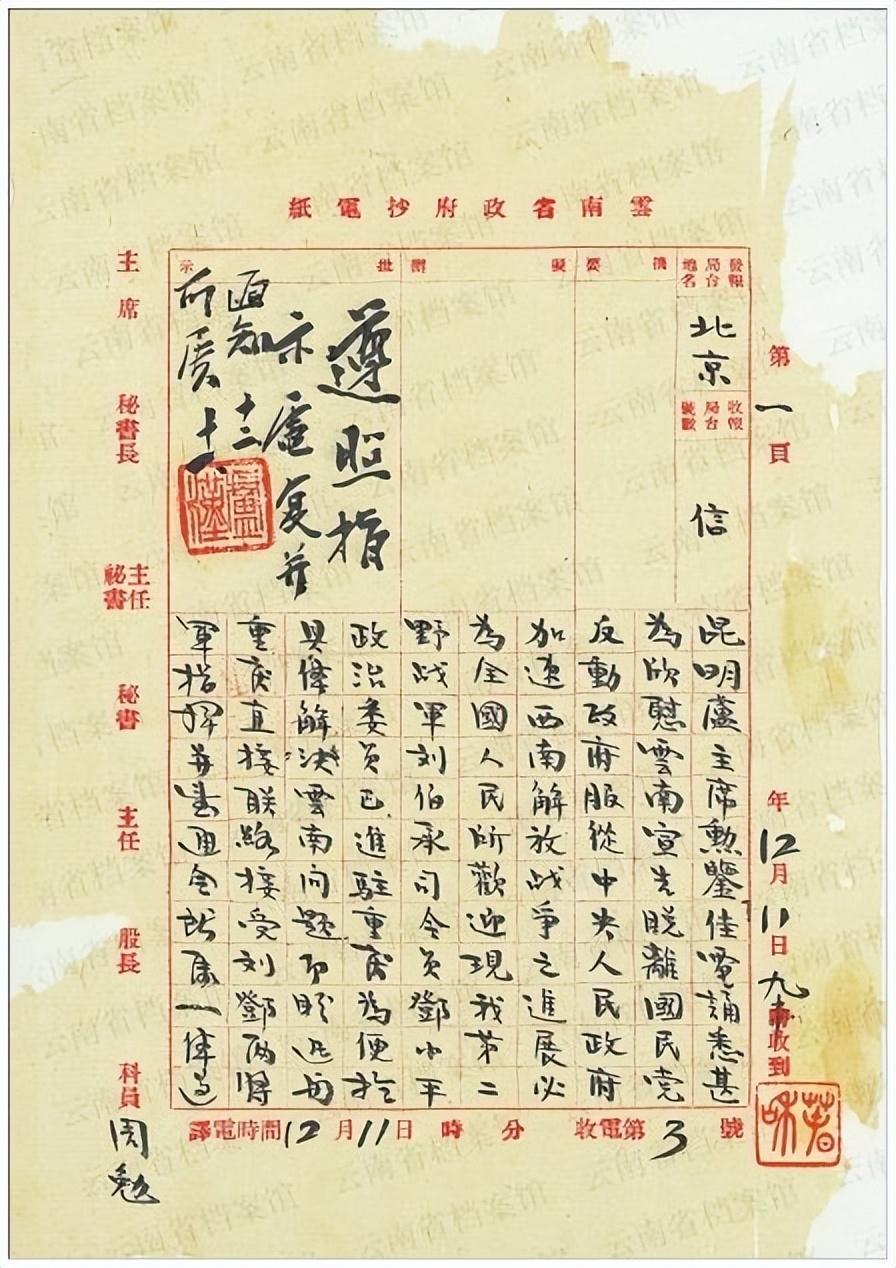 雲南省政府抄電紙
第一頁
年12月11日九時收到
發報局台地名
北京
收報局台號數
信
擬辦
批示
遵照指
示處复并
函知
所属
盧漢
昆明盧主席勳鑒佳電誦悉甚
為欣慰雲南宣告脱離國民党
反動政府服從中央人民政府
加速西南解放战爭之進展必
為全國人民所歡迎現我第二
野战軍刘伯承司令員鄧小平
政治委員已進駐重庆為便於
具体解决雲南问题即盼迅与
重庆直接联絡接受刘鄧兩将
軍指揮并望通令所属一体遵
譯電時間12月11日時分
收電第3號
主席
秘書長
主任秘書
秘書
主任
股長
科員周勉
云南省档案馆